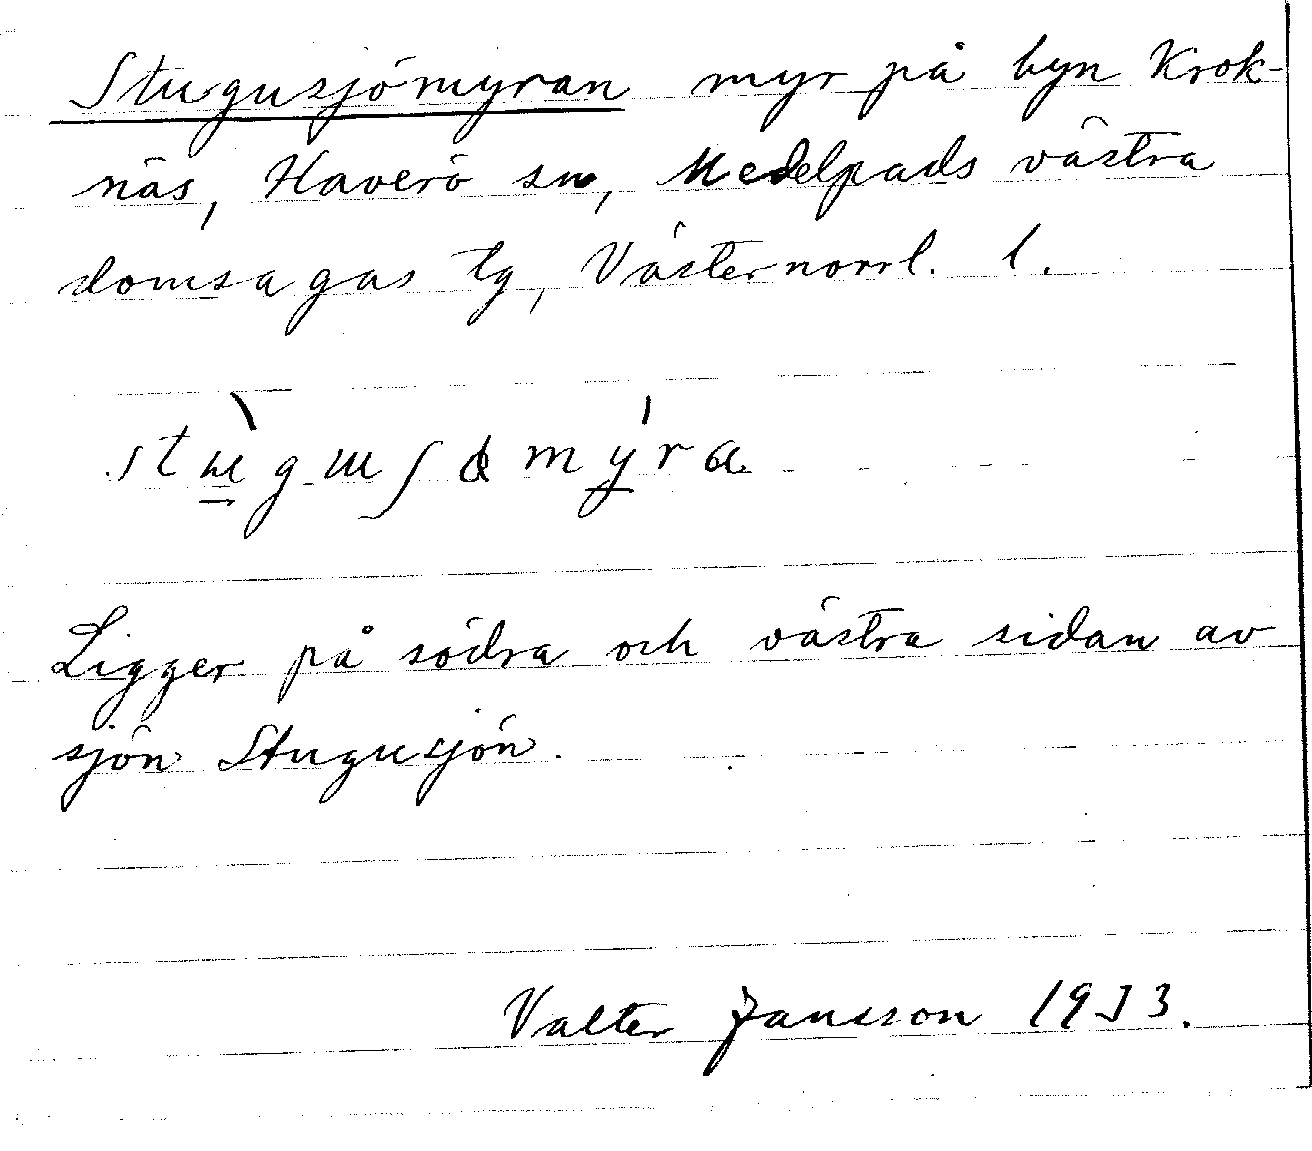 Stugusjömyran myr på byn Krok-
näs, Haverö sn, Medelpads västra
domsagas tg, Västernorrl. l.
Ligger på södra och västra sidan av
sjön Stugusjön.
Valter Jansson 1933.